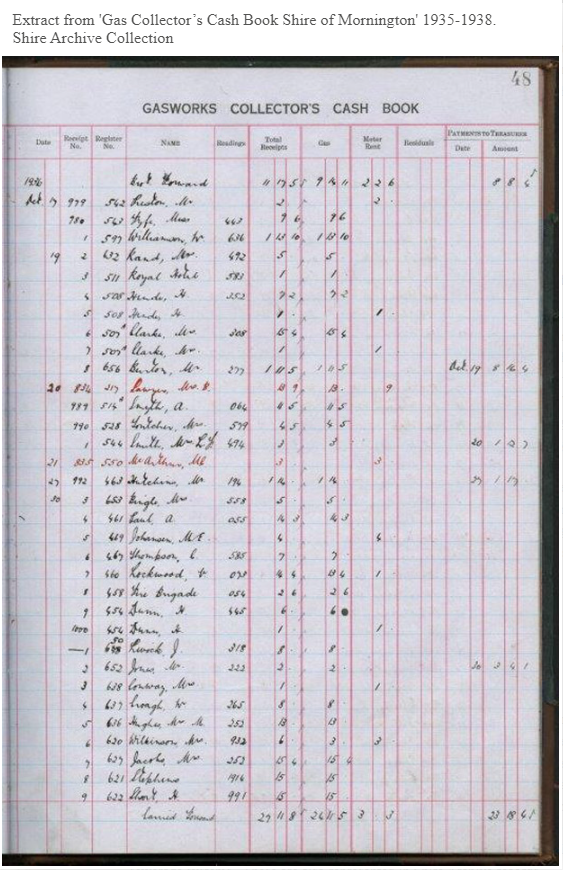 Extract from 'Gas Collector’s Cash Book Shire of Mornington' 1935-1938.
Shire Archive Collection
48
GASWORKS COLLECTOR'S CASH BOOK
Date Receipt No. Register No. NAME Readings Total Receipts Gas Meter Rent Residuals PAYMENTS TO TREASURER Date Amount
1936 Brot Forward 11 17 5 9 14 11 2 2 6 8 8
Oct 17 979 542 Mr 2 2
980 543 Fyfe, Miss 443 9 6 9 6
1 597 Williamson, W 636 1 13 10 1 13 10
19 2 632 Rand, Mr 492 5 5
3 511 Royal Hotel 583 1 1
4 508 H. 352 7 2 7 2
5 508 H. 1 1
6 507A Clarke, Mr 308 15 4 15 4
7 507A Clarke, Mr 1 1
8 656 Burton, Mr 277 1 11 5 1 11 5 Oct 19 8 4
20 834 517 Mrs 13 9 13 9
989 514A Smyth, A. 064 11 5 11 5
990 528 Mr. 579 4 5 4 5
1 544 Smith, 494 3 3 20 1 7
21 835 550 McArthur, 3 3
27 992 463 Hutchins, Mr 196 1 14 1 14 27 1 17
30 3 653 Mr. 558 5 5
4 461 Paul, A. 055 14 3 14 3
5 469 Johansen, M.E. 4 4
6 467 Thompson, C. 585 7 7
7 460 Lockwood, 073 14 4 13 4 1
8 458 Fire Brigade 054 2 6 2 6
9 454 Dunn, H 445 6 6
1000 454 Dunn, H. 1 1
1 J. 318 8 8
2 652 Jones, Mr 222 2 2 30 3 4 1
3 628 Conway, Mrs 1 1
4 637 W 265 8 8
5 636 Hughes, Mr M 252 13 13
6 630 Wilkinson, Mrs. 932 6 3 3
7 627 Jacobs, Mr 252 15 4 15 4
8 621 Stephens 1914 15 15
9 622 Short, H 991 15 15
Carried Forward 27 11 8 24 11 5 3 3 23 18